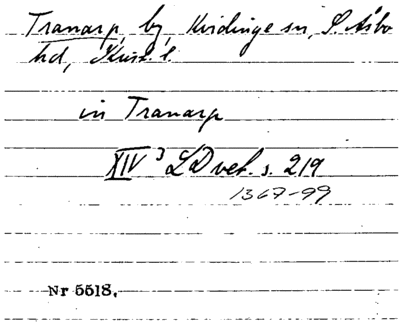 Tranarp, by, Kvidinge sn, S. Åsbo
hd, Krist. l.
in Tranarp
XIV 3 LDvet. s. 219
1367-99
Nr 5518.